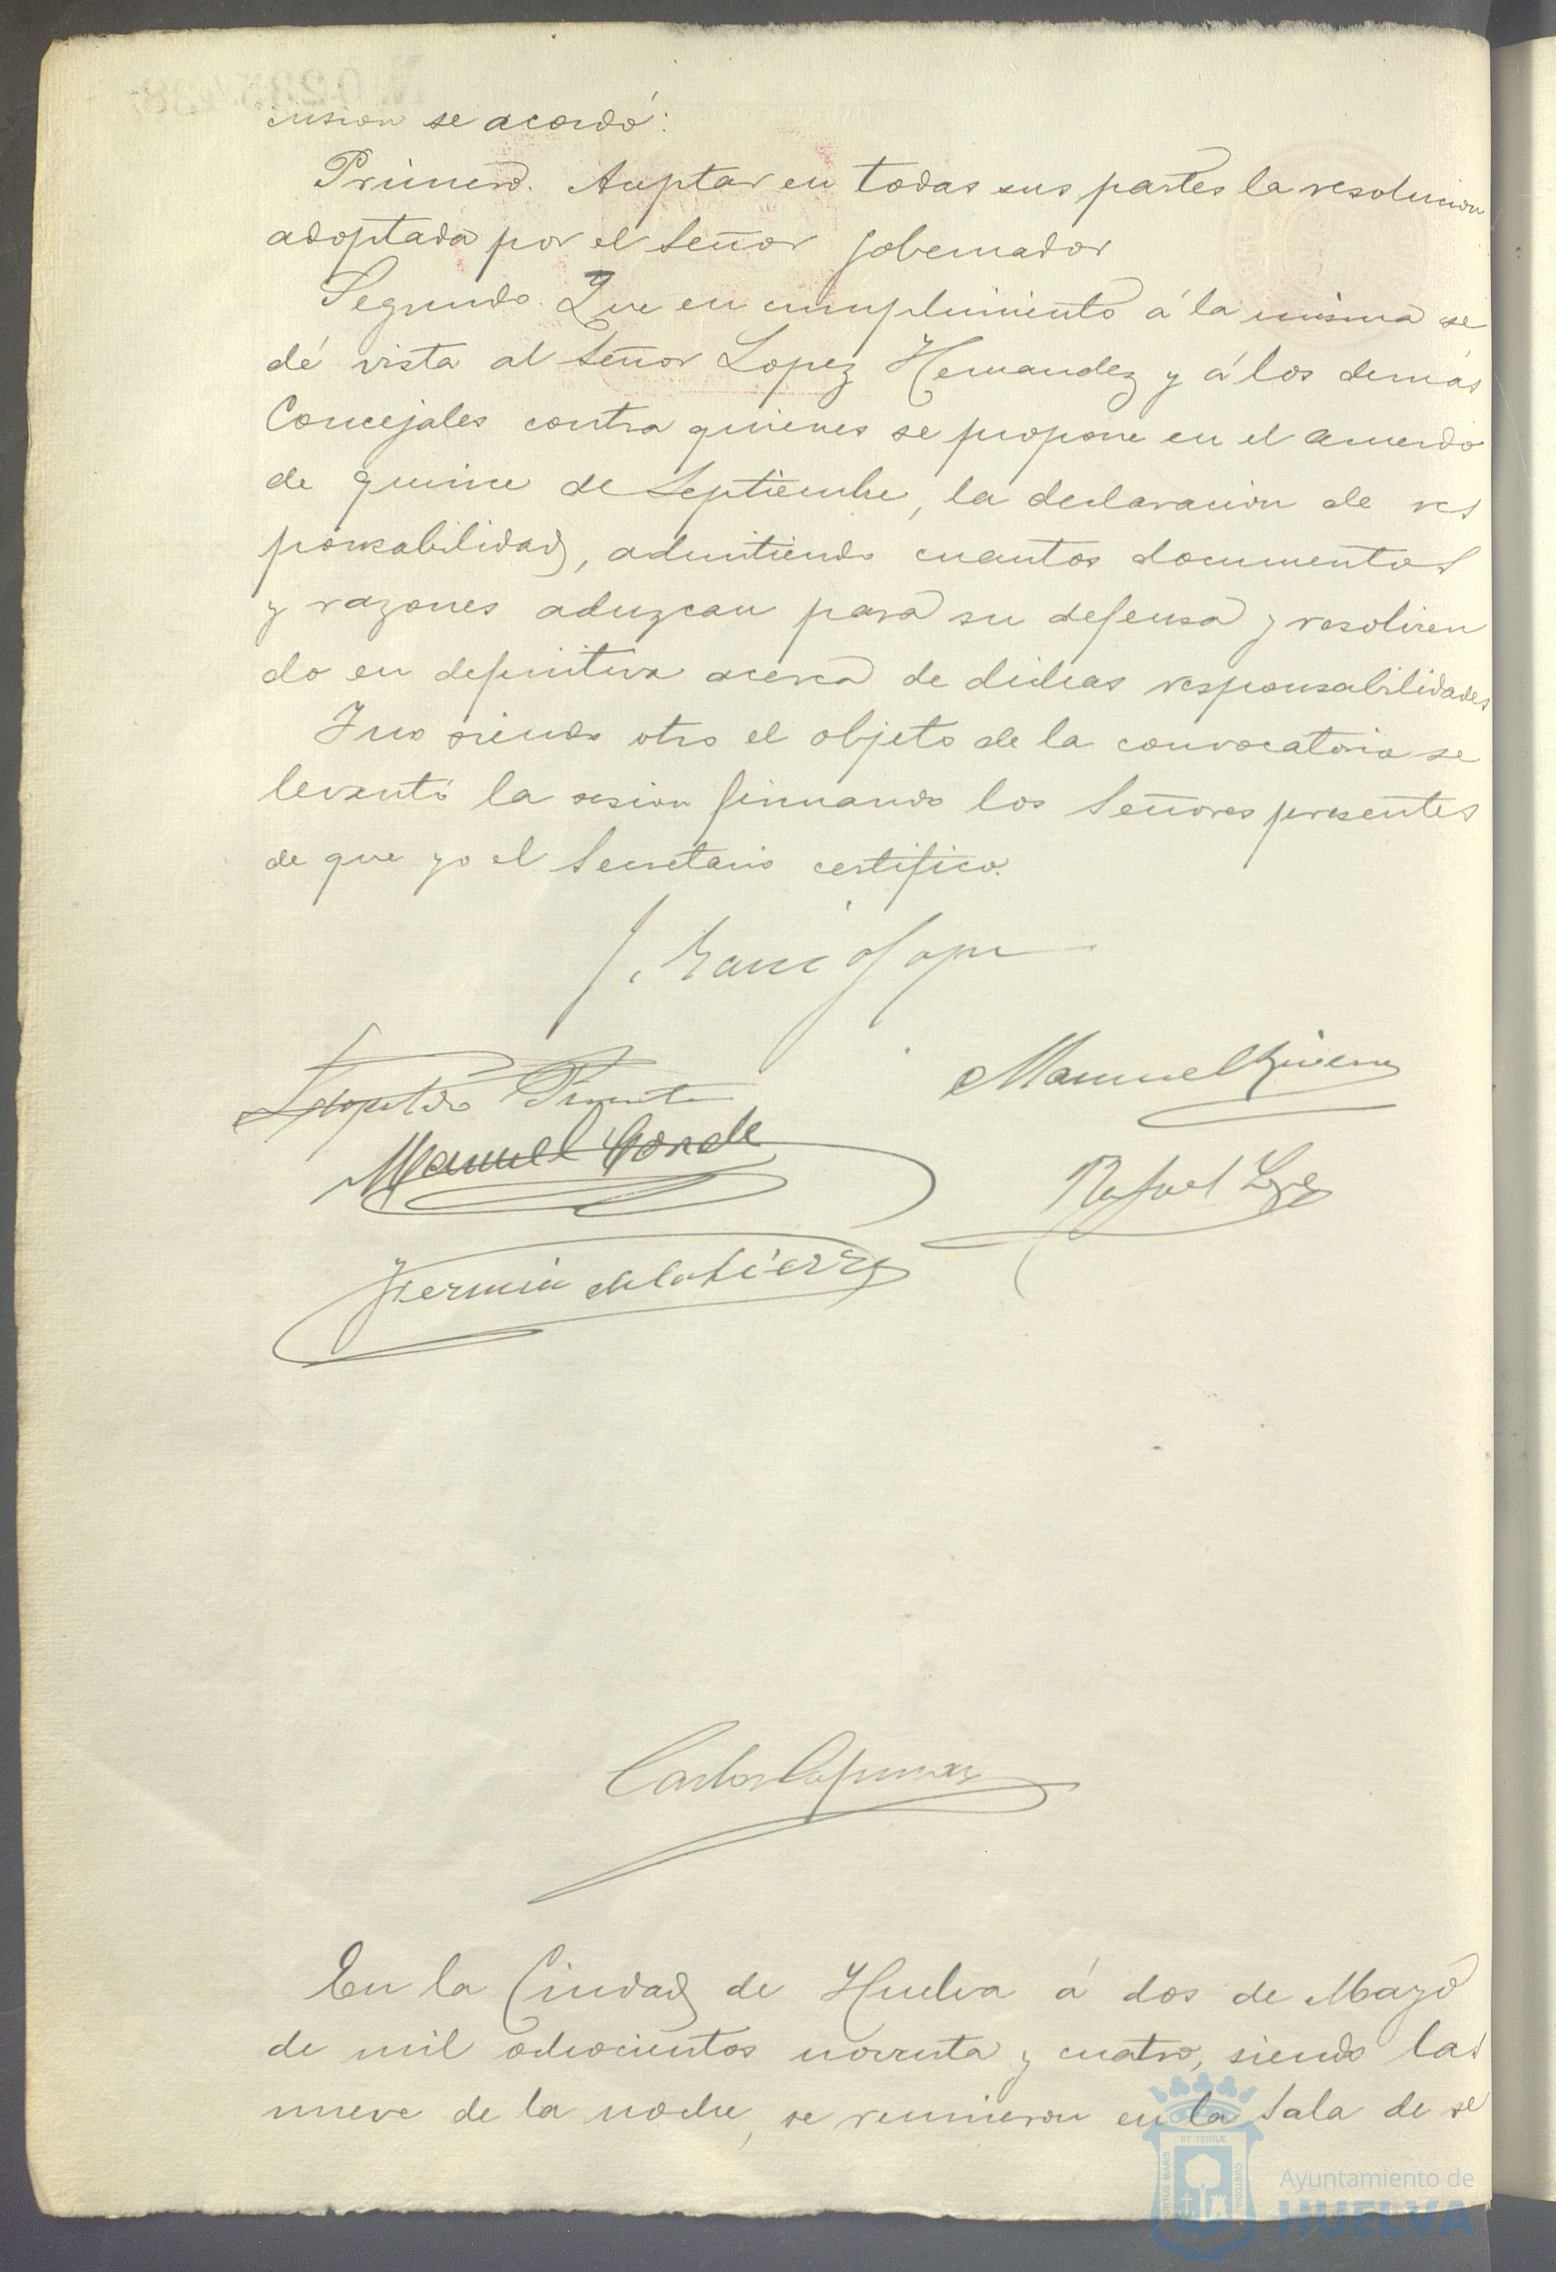 cusion se acordó:
Primero. Aceptar en todas sus partes la resolucion
adoptada por el Señor Gobernador
Segundo. Que en cumplimiento á la misma se
dé vista al Señor Lopez Hernandez y á los demás
Concejales contra quienes se propone en el acuerdo
de quince de Septiembre, la declaracion de res
ponsabilidad, admitiendo cuantos documentos
y razones aduzcan para su defensa y resolvien
do en definitiva acerca de dichas responsabilidades
Y no siendo otro el objeto de la convocatoria se
levantó la sesion firmando los Señores presentes
de que yo el Secretario certifico.
J. Garci Lopez
Manuel
Leopoldo
Manuel Conde
Rafael Lopez
Fermin de la Sierra
Carlos
En la Ciudad de Huelva á dos de Mayo
de mil ochocientos noventa y cuatro, siendo las
nueve de la noche, se reunieron en la Sala de se
PORTUS MARIS ET TERRÆ CUSTODIA
Ayuntamiento de
HUELVA